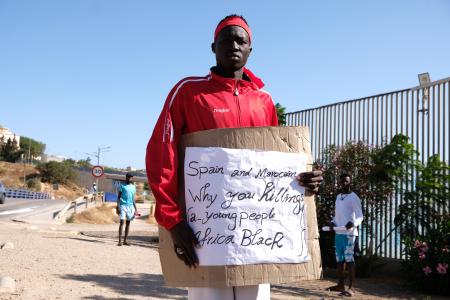 Spain and Morocain
Why you killing
a-young people
Africa Black